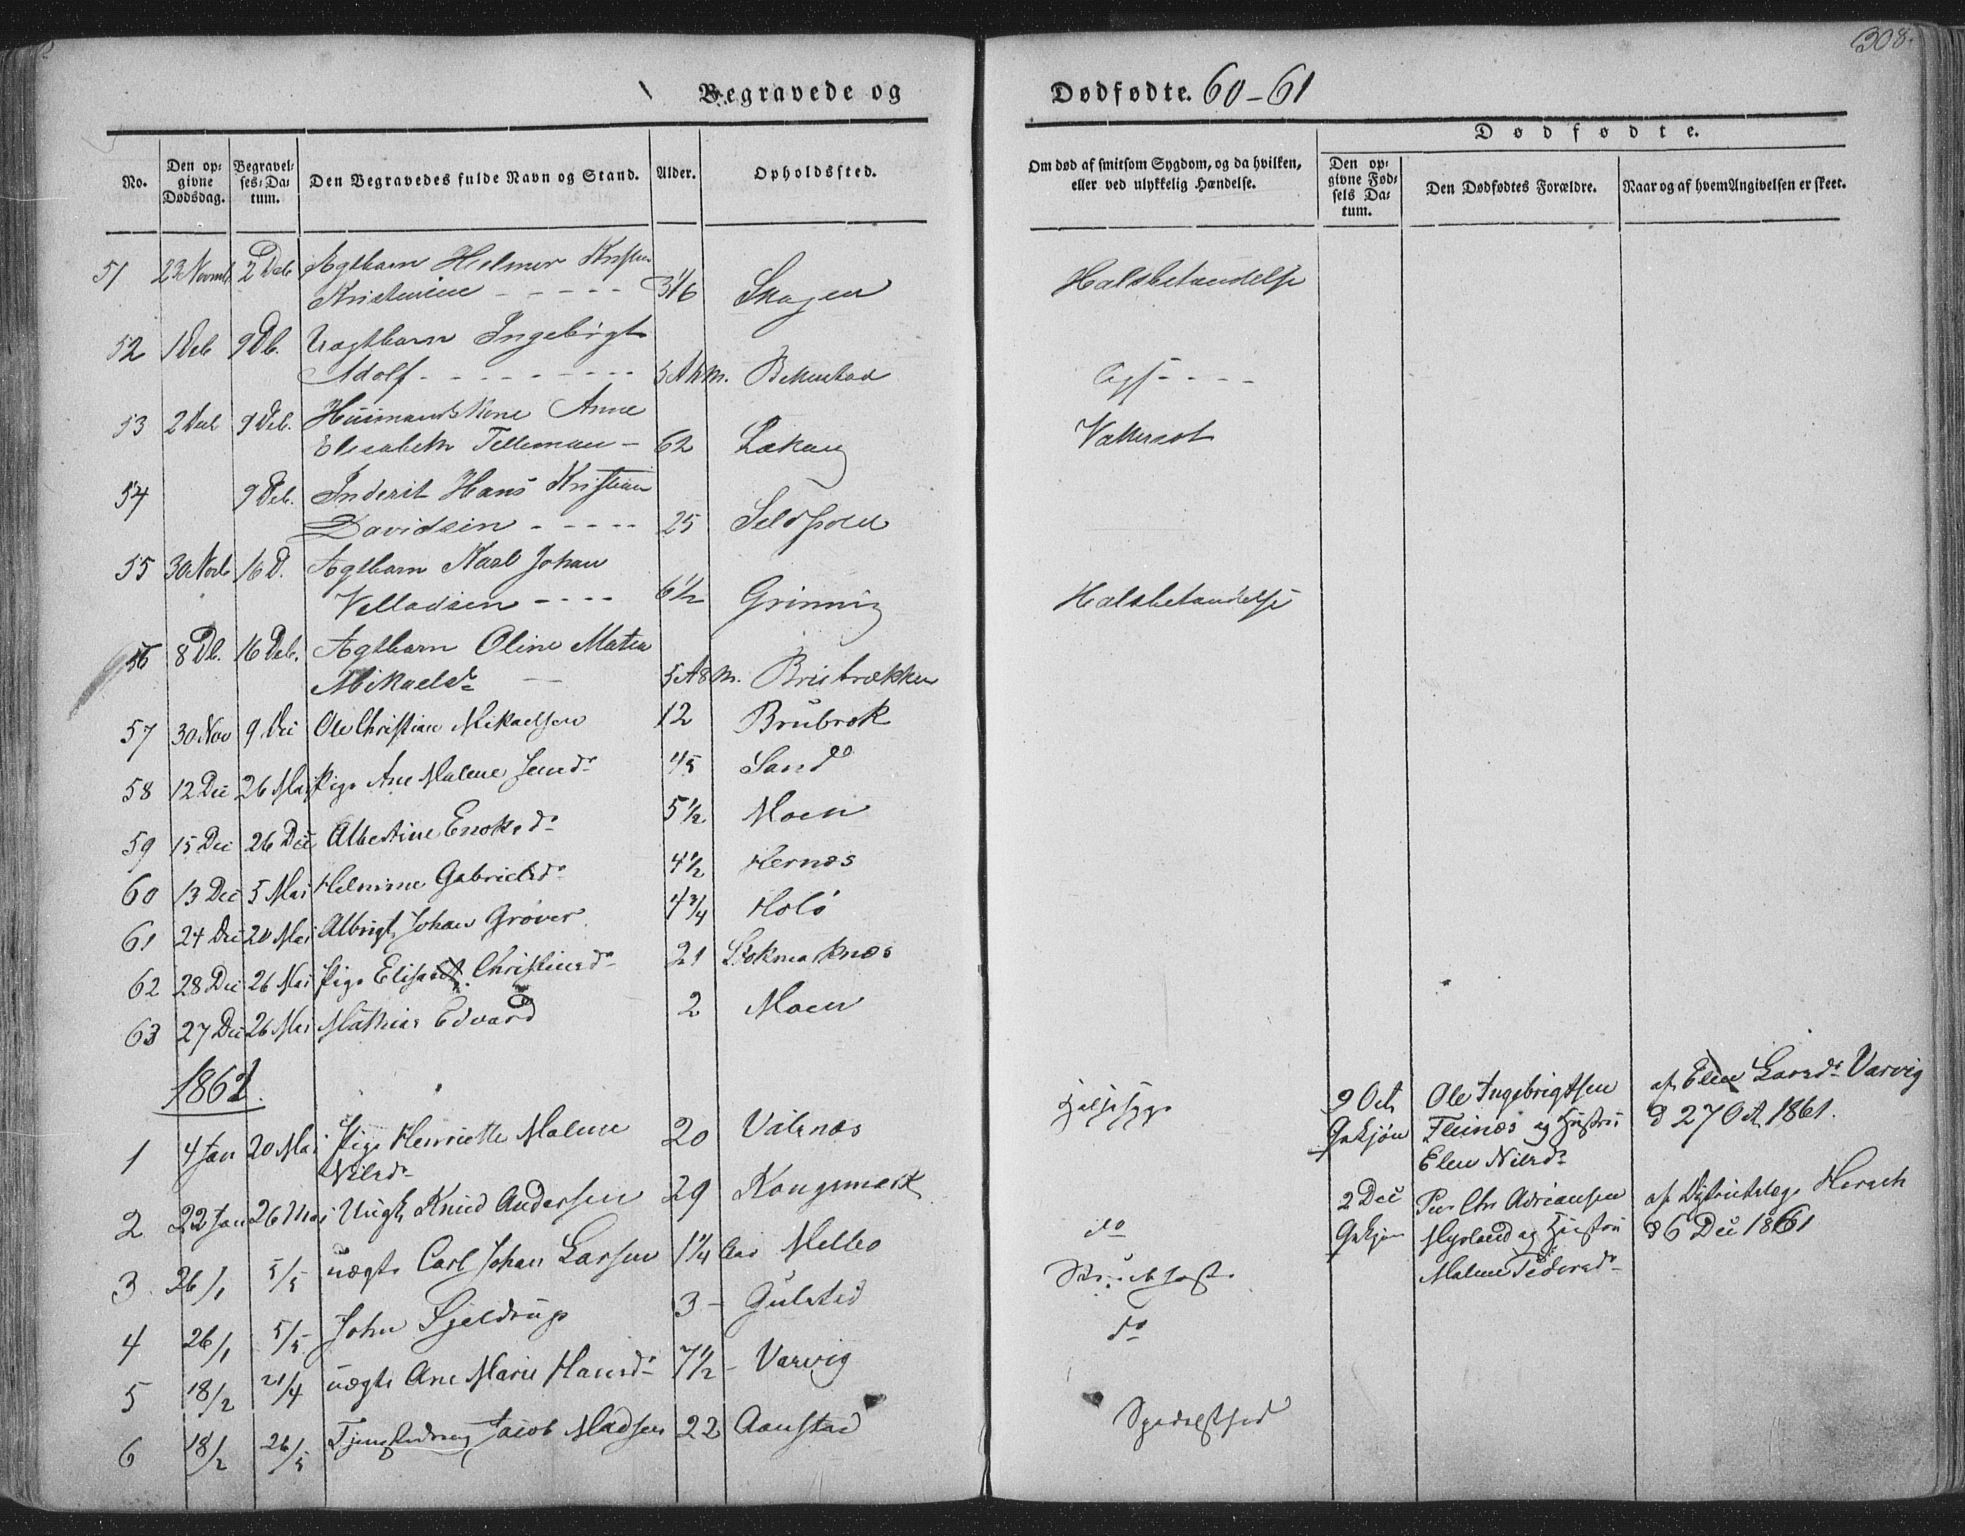 308.
Begravede og Dødfødte. 60-61
Dødfødte.
No.
Den opgivne Dødsdag.
Begravelses-Datum.
Den Begravedes fulde Navn og Stand.
Alder.
Opholdssted.
Om død af smitsom Sygdom, og da hvilken, eller ved ulykkelig Hændelse.
Den opgivne Fødsels Datum.
Den Dødfødtes Forældre.
Naar og af hvem Angivelsen er skeet.
51 23 Novmb 2 Deb Ægtbarn Helmer
Kristenine - - - - - Skagen Halsbetændelse
52 1 Deb 9 Db. Uægtbarn Ingebrigt
Adolf - - - - - - -
53 2 Deb 9 Deb. Huusmandskone Anne
Elisabeth Tilleman - 62 Vattersot
54 9 Deb. Inderst Hans Kristian
Davidsen - - - - - 25
55 30 Novb 16 D. Ægtbarn Karl Johan
- - - - 6 1/2 Grinnig Halsbetændelse
56 8 Db. 16 Deb. Ægtbarn Oline Matea
Mikaelsd. 5 A 8 M. Bristrækken
57 30 Nov 9 Dec Ole Christian Mikaelsen 12 Brubrok
58 12 Dec 26 Mai Pige Ane Malene 45 Sand
59 15 Dec 26 Dec Albertine Enoksd. 5 1/2 Moen
60 13 Dec 5 Mai Helmine Gabrielsd. 4 1/2 Hernæs
61 24 Dec 20 Mai Albrigt Johan Grøver 4 3/4
62 28 Dec 26 Mai Pige Elisabet Christiansd. 21 Stokmarknæs
63 27 Dec 26 Mai Mathias Edvard 2 Moen
1862.
1 4 Jan 20 Mai Pige Henriette Malene
Nilsd. 20 Valnæs
2 22 Jan 26 Mai Ungk. Knud Andersen 29 Kongsmark do
3 26/1 5/5 uægte Carl Johan Larsen 1 1/4 Aar Melbo
4 26/1 5/5 John Fjeldrup 3 - Gulstad do
5 18/2 21/4 uægte Ane Marie Hansd. 7 1/2 - Varvig
6 18/2 26/5 Tjenestedreng Jacob Madsen 22 Aanstad Spedalskhed
9 Oct Ole Ingebrigtsen af Elen Larsd. Varvig
Qvkjøn Fleinæs og Hustru d 27 Oct 1861.
Elen Nilsd.
2 Dec Peer Chr Adriansen af Districtslæge Hersch
Qvkjøn Myrland og Hustru d 6 Dec 1861
Malene Pedersd.